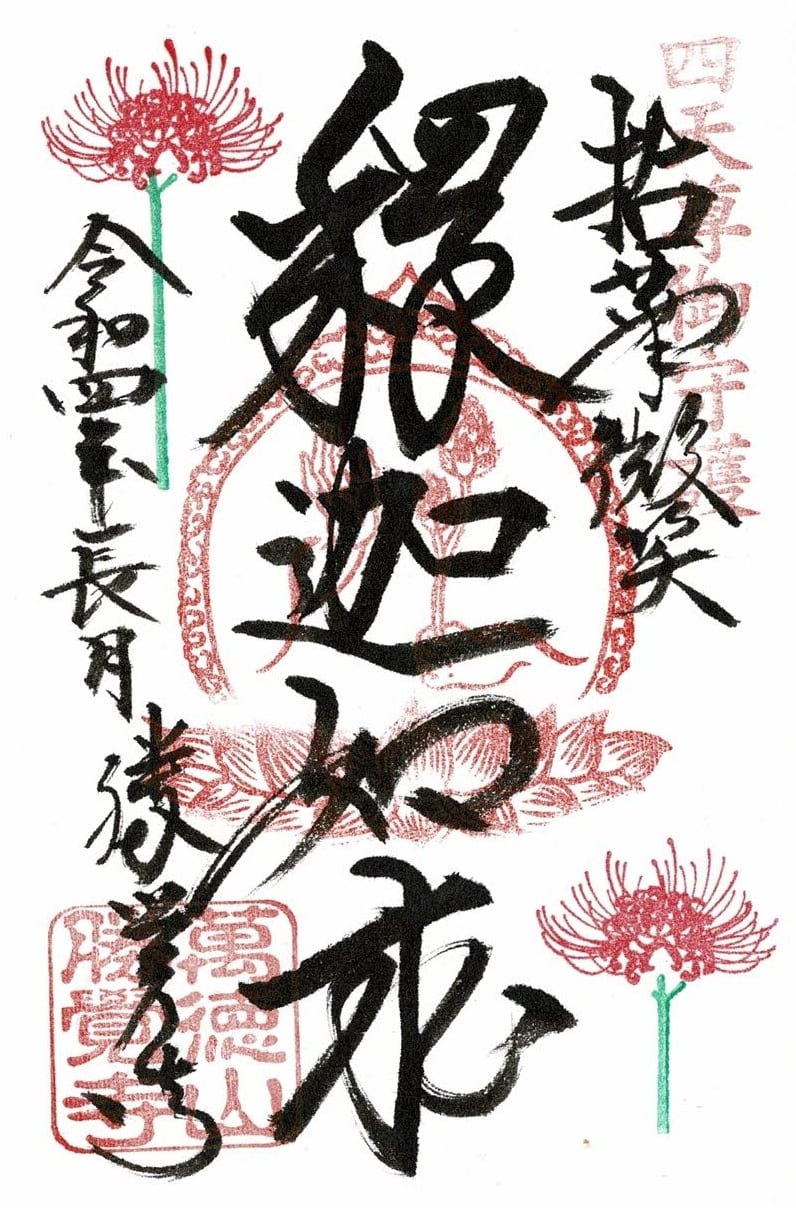 四天尊御守護
拈華微笑
釋迦如来
令和四年長月
勝覚寺
萬徳山
勝覺寺